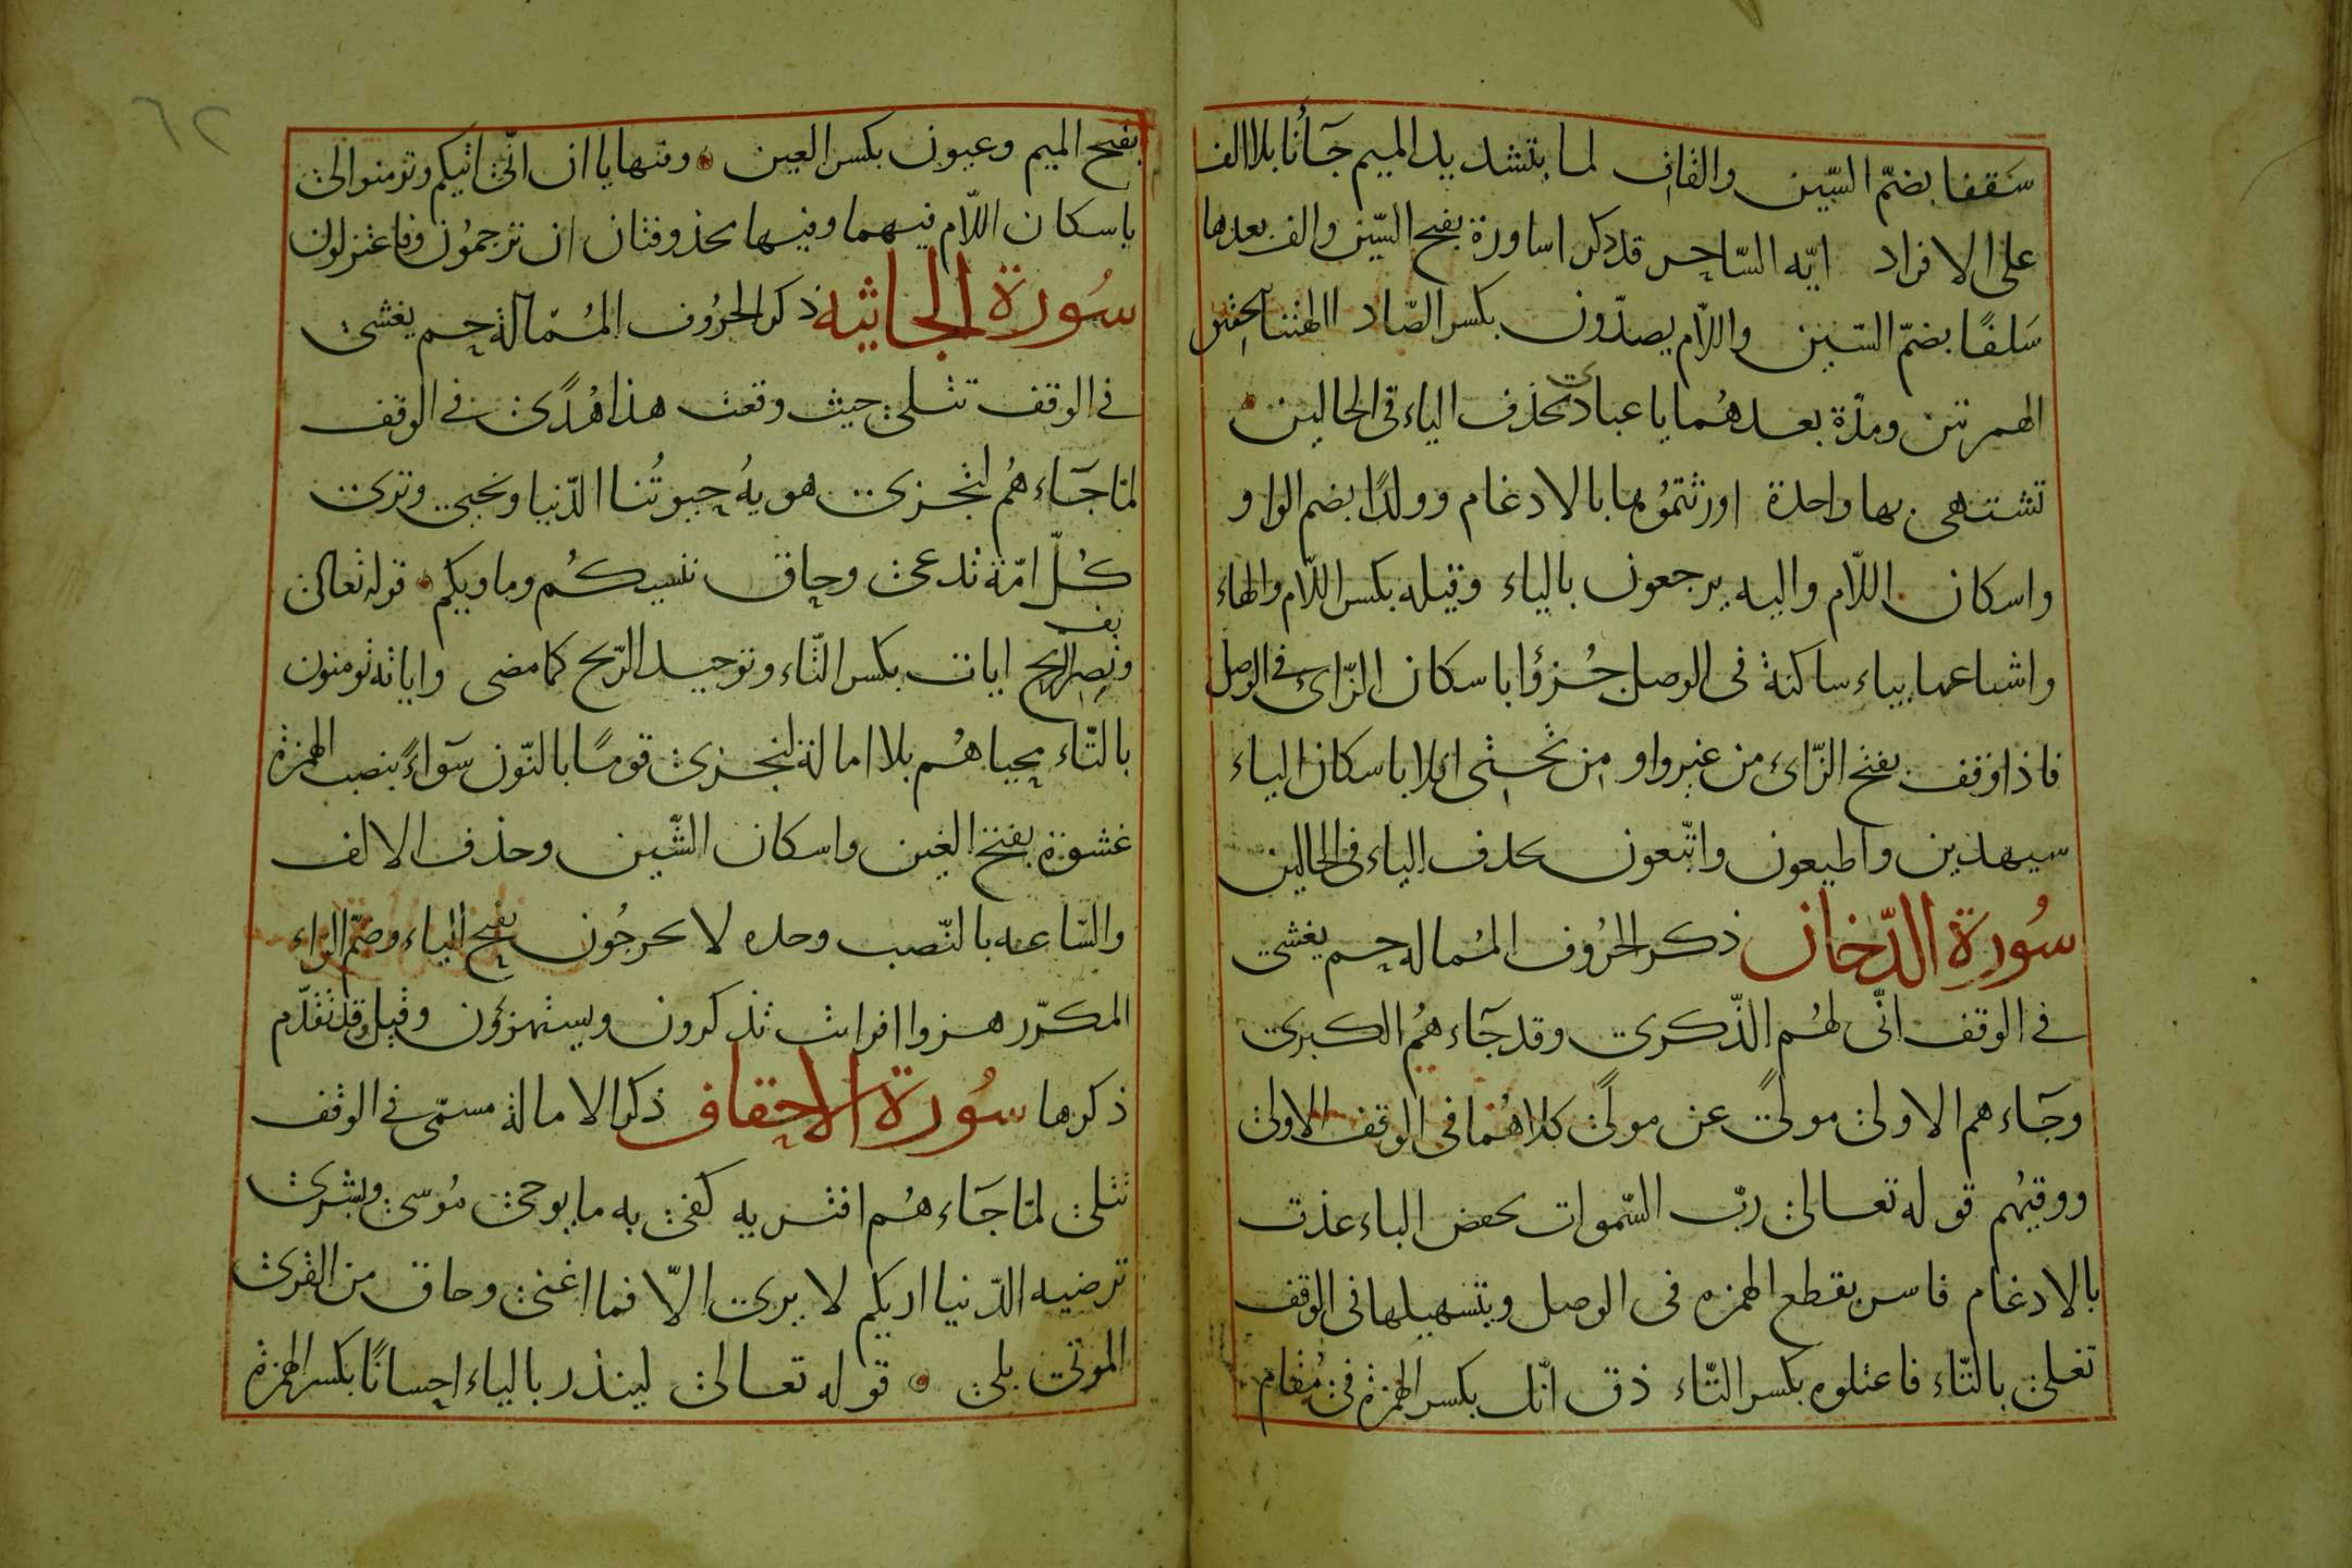 سَقفا بضمّ السّين والقاف لما بتشديد الميم جَآأنا بلا الف
على الافراد ايّه السّاحر قد ذكر اساورة بفتح السّين والف بعدها
سَلفًا بضمّ السّين واللّام يصدّون بكسر الصّاد االهتنا بتحقيق
الهمزتين ومدّة بعدهُما يا عبادى بحذف الياء فى الحالين
تشتهى بها واحدة اورثتمُوها بالادغام وولدًا بضم الواو
واسكان اللّام واليه يرجعون بالياء وقيله بكسر اللّام والهاء
واشباعها بياء ساكنة فى الوصل جُزؤا باسكان الزّاى فى الوصل
فاذا وقف بفتح الزّاى من غير واو من تحتى افلا باسكان الياء
سيهدين واطيعون واتّبعون بحذف الياء فى الحالين
سُورة الدّخان ذكر الحرُوف المُماله حم يغشى
فى الوقف انّى لهُم الذّكرى وقد جَآءهُم الكبرى
وجَآءهم الاولى مولىً عن مولىً كلاهُما فى الوقف الاولى
ووقيهُم قوله تعالى ربّ السّموات بخفض الباء عذت
بالادغام فاسر بقطع الهمزه فى الوصل وبتسهيلها فى الوقف
تغلى بالتّاء فاعتلوه بكسر التّاء ذق انّك بكسر الهمزة فى مُقام
٦٢
بفتح الميم وعيون بكسر العين وفيها ياان انّى اتيكم وتؤمنوا لى
باسكان اللّام فيهما وفيها محذوفتان ان ترجمُون وفاعتزلون
سُورة الجاثيه ذكر الحرُوف المُمالة حم يغشى
فى الوقف تتلى حيث وقعت هذا هُدًى فى الوقف
لمّا جَآءهُم لتجزى هويهُ حيوتُنا الدّنيا ونحيى وترى
كُلّ امّة تدعى وحاق ننسيكُم وماويكم قوله تعالى
وتصريف الريح ايات بكسر التّاء وتوحيد الرّيح كما مضى واياته تومنون
بالتّاء محياهُم بلا امالة لنجزى قومًا بالنّون سَوآءً بنصب الهمزة
غشوة بفتح الغين واسكان الشّين وحذف الالف
والسّاعه بالنّصب وحده لا يخرجُون بفتح الياء وضمّ الرّاء
المكرّر هزوا افرايت تذكرون ويستهزؤن وقيل وقد تقدّم
ذكرها سُورة الاحقاف ذكر الامالة مسمّى فى الوقف
تتلى لمّا جَآءهُم افتريه كفى به ما يوحى مُوسى وبشرى
ترضيه الدّنيا اريكم لا يرى الّا فما اغنى وحاق من القرى
الموتى بلى قوله تعالى لينذر بالياء احسانًا بكسر الهمزة